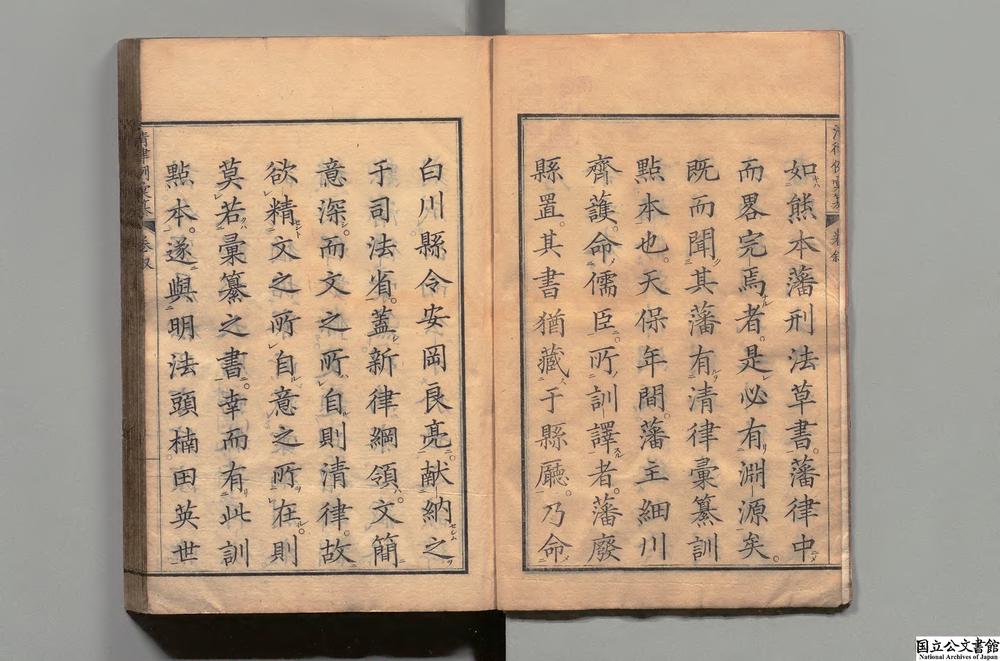 清律例彙纂 卷叙
如熊本藩刑法草書。藩律中
而畧完焉者。是必有淵源矣。
既而聞其藩有清律彙纂訓
點本也。天保年間。藩主細川
齊護。命儒臣。所訓譯者。藩廢
縣置。其書猶藏于縣廳。乃命
白川縣令安岡良亮。献納之
于司法省。蓋新律綱領。文簡
意深。而文之所自則清律。故
欲精文之所自意之所在。則
莫若彙纂之書。幸而有此訓
點本。遂與明法頭楠田英世
清律例彙纂 卷叙
国立公文書館
National Archives of Japan